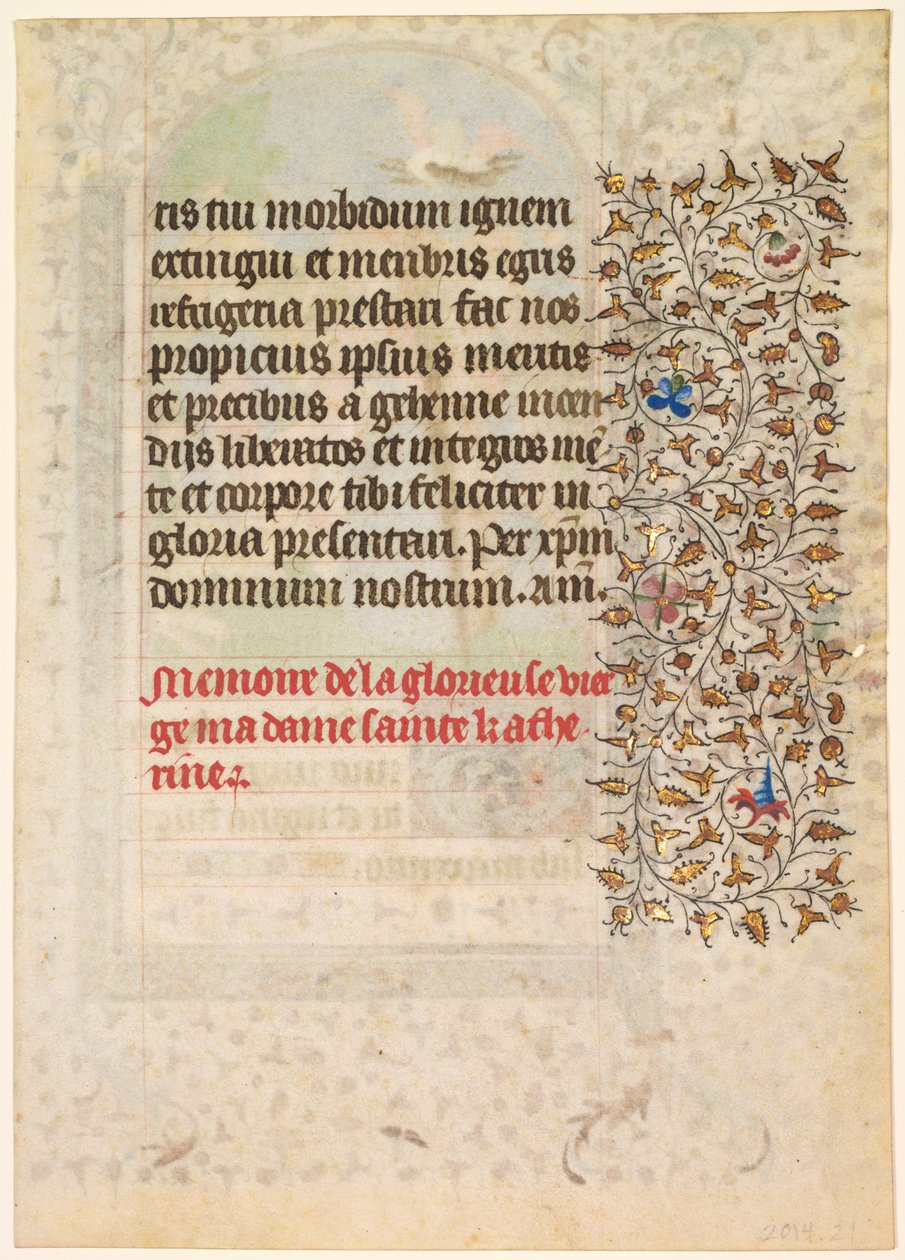 ris tiu morbidum ignem
extingui et menbris egris
refrigeria prestari fac nos
propicius ipsius meritis
et precibus a gehenne incen
dijs liberatos et integros mē
te et corpore tibi feliciter in
gloria presentari. Per xp̄m
dominum nostrum. Am̄.
Memoire de la glorieuse vier
ge ma dame sainte kathe
rine.
2014.21